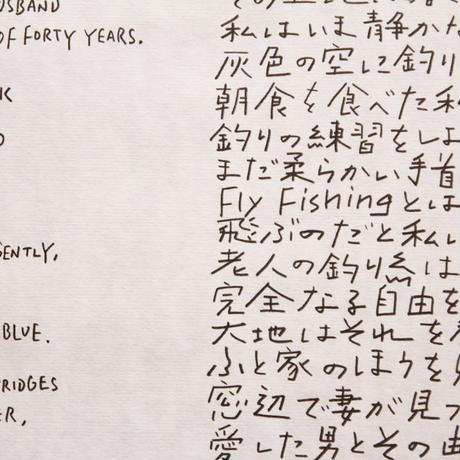 USBAND
OF FORTY YEARS.
ENTLY,
BLUE.
RIDGES
ER,
私はいま静かな
灰色の空に釣り
朝食を食べた
釣りの練習をしよ
まだ柔らかい手首
Fly Fishingとは
飛ぶのだと私
老人の釣り糸は
完全なる自由を
大地はそれを
ふと家のほうを
窓辺で妻が見
愛した男とその